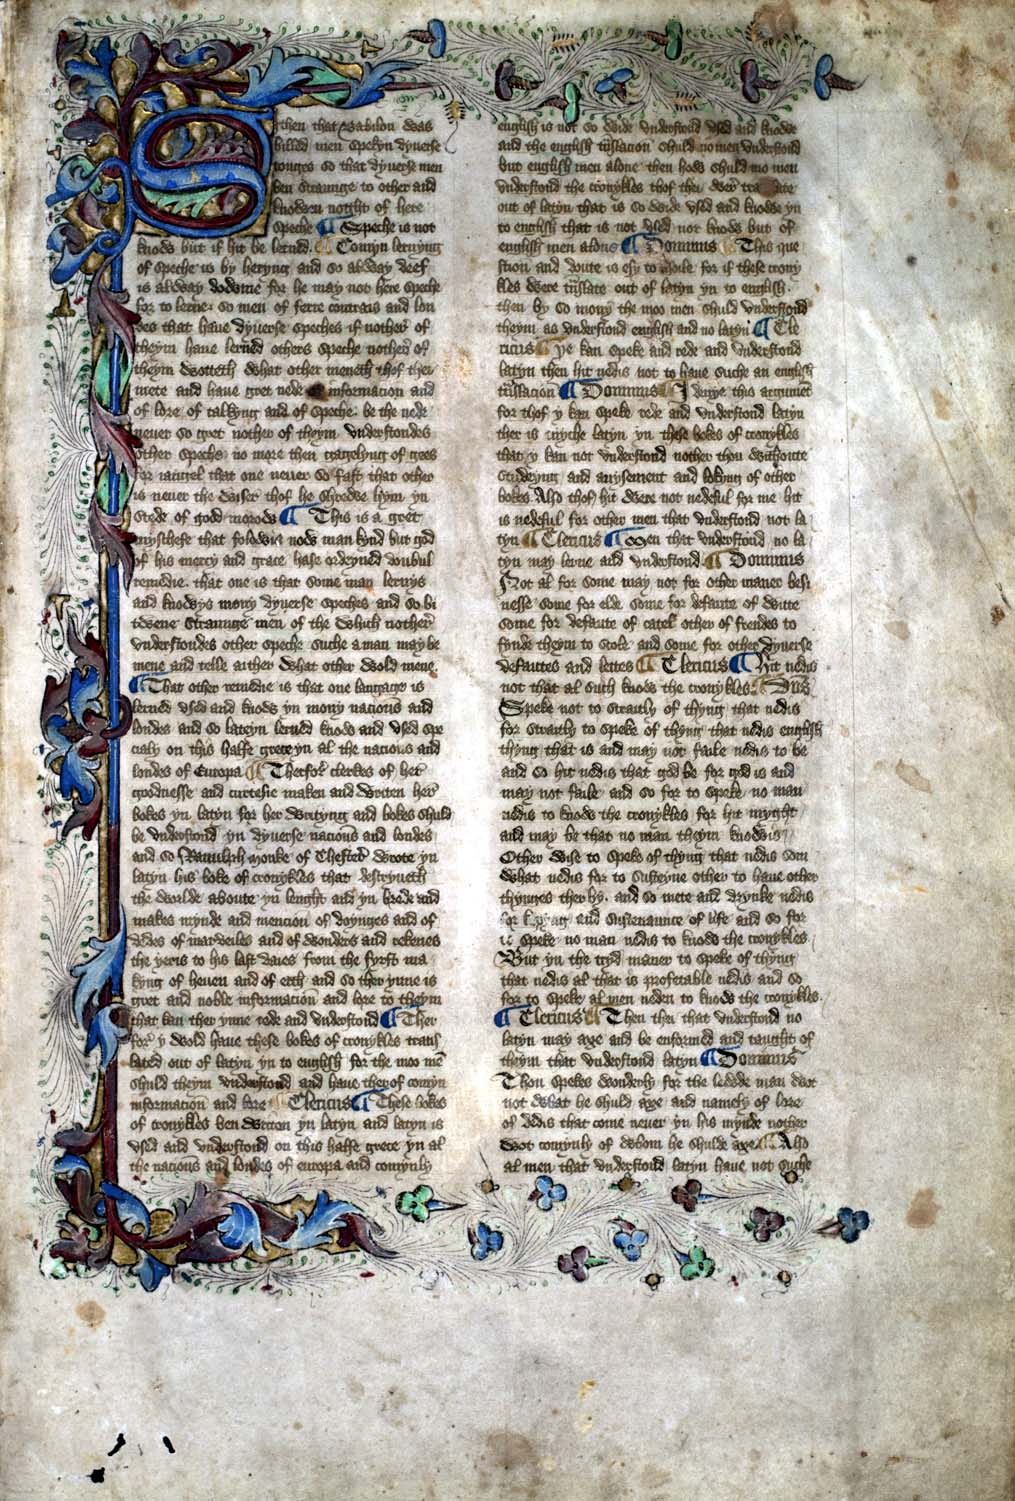 Sithen that Babilon was
billed men spekyn dyuerse
tonges so that dyuerse men
ben straunge to other and
knowen notght of here
speche ¶ Speche is not
know but if hit be lerned. ¶ Comyn lernyng
of speche is by heryng and so alway deef
is alway dowme for he may not here speche
for to lerne. so men of ferre contreis and lon
des that haue dyuerse speches if nother of
theym haue lerned others speche nother of
theym wotteth what other meneth thof they
mete and haue gret nede information and
of lore of talkyng and of speche. be the nede
neuer so gret nother of theym vnderstondes
other speche no more then gagelyng of gees
for iangel that one neuer so fast that other
is neuer the wiser thof he shrewe hym yn
stede of good morow ¶ This is a gret
myschefe that folowis now man kynd but god
of his mercy and grace hase ordeyned doubul
remedie. that one is that some man lernys
and knowys mony dyuerse speches and so bi
twene straunge men of the which nother
vnderstondes other speche suche a man may be
mene and telle aither what other wold mene.
¶ That other remedie is that one langage is
lerned vsed and know yn mony nacions and
londes and so lateyn lerned know and vsed spe
cialy on this halfe grece yn al the nacions and
londes of Europa ¶ Therfor clerkes of her
goodnesse and curtesie maken and writen her
bokes yn latyn for her writyng and bokes shuld
be vnderstond yn dyuerse nacions and londes
and so Ranulph monke of Chestre wrote yn
latyn his boke of cronykles that descryueth
the worlde aboute yn lenght and yn brede and
makes mynde and mencion of doynges and of
dedes of meruelles and of wonders and rekenes
the yeris to his last daies from the fyrst ma
kyng of heuen and of erth and so ther ynne is
gret and noble information and lore to theym
that kan ther ynne rede and vnderstond ¶ Ther
for y wold haue these bokes of cronykles trans
lated out of latyn yn to english for the moo men
shuld theym vnderstond and haue therof comyn
information and lore ¶ Clericus ¶ These bokes
of cronykles ben writon yn latyn and latyn is
vsed and vnderstond on this halfe grece yn al
the nacions and londes of europa and comynly
english is not so wide vnderstond vsed and knowe
and the english translacion shuld no men vnderstond
but english men alone then how shuld mo men
vnderstond the cronykles thof they wer translate
out of latyn that is so wide vsed and knowe yn
to english that is not vsed nor know but of
english men alone ¶ Dominus ¶ This que
stion and doute is esy to assoile for if these crony
kles were translate out of latyn yn to english.
then by so mony the moo men shuld vnderstond
theym as vnderstond english and no latyn ¶ Cle
ricus ¶ Ye kan speke and rede and vnderstond
latyn then hit nedis not to haue suche an english
translacion ¶ Dominus ¶ I denye this argument
for thof y kan speke rede and vnderstond latyn
ther is myche latyn yn these bokes of cronykles
that y kan not vnderstond nother thou withoute
studeyng and auysement and lokyng of other
bokes Also thof hit were not nedeful for me hit
is nedeful for other men that vnderstond not la
tyn ¶ Clericus ¶ Men that vnderstond no la
tyn may lerne and vnderstond ¶ Dominus
Not al for some may not for other maner besi
nesse some for elde some for defaute of witte
some for defaute of catel other of frendes to
fynde theym to scole and some for other dyuerse
defautes and lettes ¶ Clericus ¶ Hit nedis
not that al such know the cronykles ¶ Dns
Speke not to straitly of thyng that nedis
for straitly to speke of thyng that nedis english
thyng that is and may not faile nedis to be
and so hit nedis that god be for god is and
may not faile and so for to speke no man
nedis to knowe the cronykles for hit myght
and may be that no man theym knowis
Other wise to speke of thyng that nedis som
what nedis for to susteyne other to haue other
thynges ther by. and so mete and drynke nedis
for kepyng and sustenaunce of life and so for
to speke no man nedis to know the cronykles
But yn the tryd maner to speke of thyng
that nedis al that is profetable nedis and so
for to speke al men neden to know the cronykles.
¶ Clericus ¶ Then they that vnderstond no
latyn may axe and be enformed and taught of
theym that vnderstond latyn ¶ Dominus
Thou spekes wonderly for the lewde man wot
not what he shuld axe and namely of lore
of dedis that come neuer yn his mynde nother
wot comynly of whom he shulde axe ¶ Also
al men that vnderstond latyn haue not suche